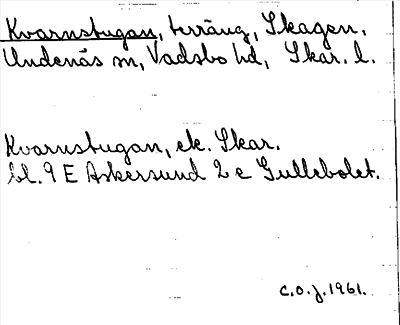 Kvarnstugan, terräng, Skagen,
Undenäs sn, Vadsbo hd, Skar. l.
Kvarnstugan, ek. Skar.
bl. 9 E Askersund 2 c Gullebolet.
C.O.J. 1961.